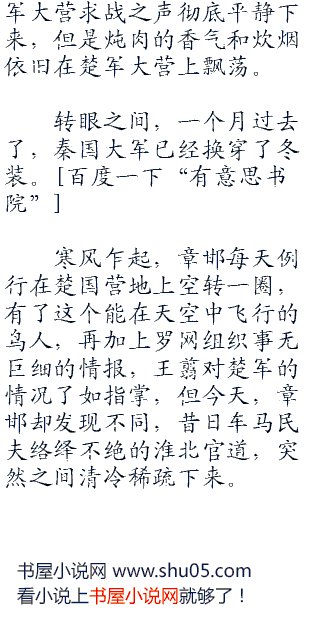 军大营求战之声彻底平静下
来，但是炖肉的香气和炊烟
依旧在楚军大营上飘荡。
转眼之间，一个月过去
了，秦国大军已经换穿了冬
装。[百度一下“有意思书
院”]
寒风乍起，章邯每天例
行在楚国营地上空转一圈，
有了这个能在天空中飞行的
鸟人，再加上罗网组织事无
巨细的情报，王翦对楚军的
情况了如指掌，但今天，章
邯却发现不同，昔日车马民
夫络绎不绝的淮北官道，突
然之间清冷稀疏下来。
书屋小说网 www.shu05.com
看小说上书屋小说网就够了！